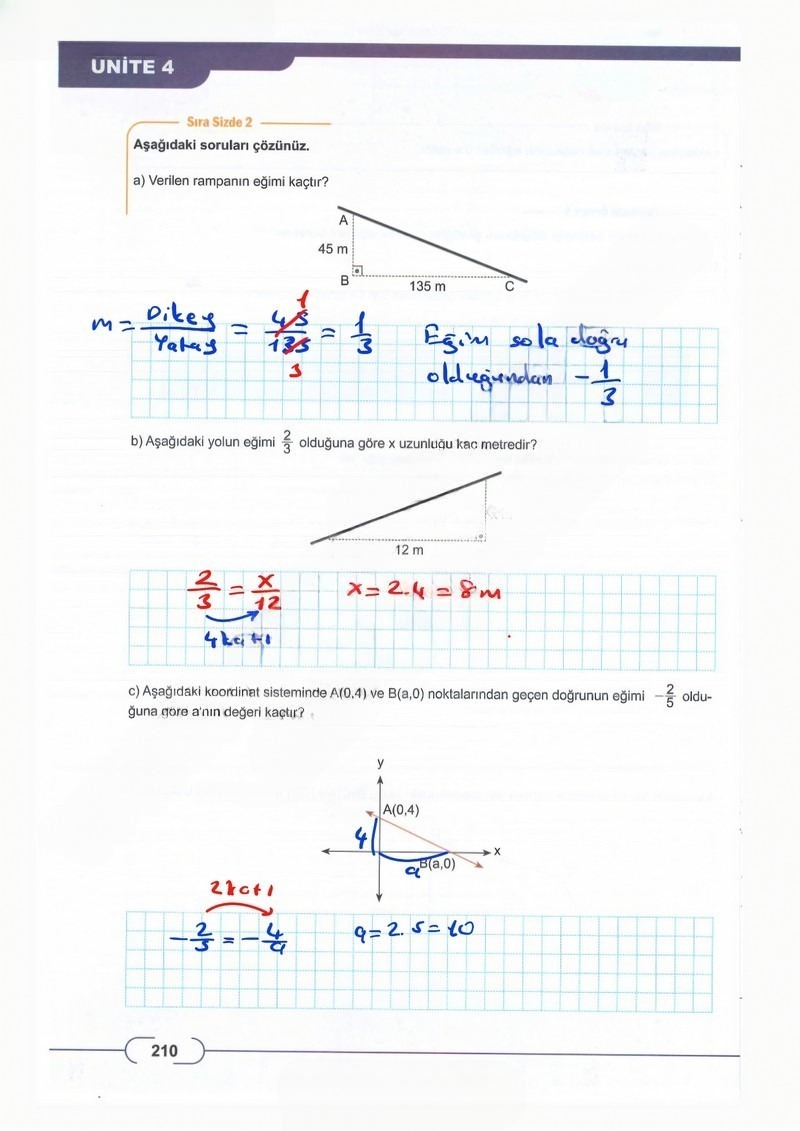 UNİTE 4
Sıra Sizde 2
Aşağıdaki soruları çözünüz.
a) Verilen rampanın eğimi kaçtır?
A
45 m
B
135 m
C
m = Dikey / Yatay = 45 / 135 = 1 / 3
1
3
Eğim sola doğru
olduğundan - 1 / 3
b) Aşağıdaki yolun eğimi 2/3 olduğuna göre x uzunluğu kac metredir?
12 m
2/3 = x/12
x = 2.4 = 8m
4 katı
c) Aşağıdaki koordinat sisteminde A(0,4) ve B(a,0) noktalarından geçen doğrunun eğimi -2/5 oldu-
ğuna göre a'nın değeri kaçtır?
y
A(0,4)
4
x
B(a,0)
a
2 katı
-2/5 = -4/a
a = 2.5 = 10
210